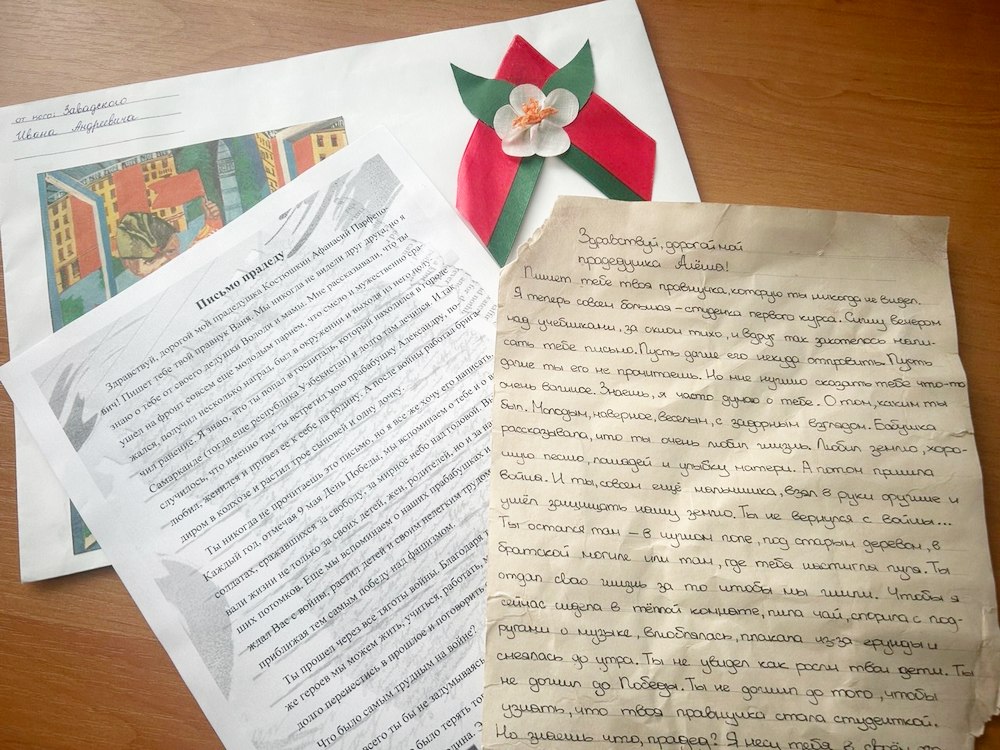 от кого: Завадского
Ивана Андреевича
Письмо прадеду
Здравствуй, дорогой мой прадедушка Костюшкин Афанасий Парфено-
вич! Пишет тебе твой правнук Ваня. Мы никогда не видели друг друга, но я
знаю о тебе от своего дедушки Володи и мамы. Мне рассказывали, что ты
ушел на фронт совсем еще молодым парнем, что смело и мужественно сра-
жался, получил несколько наград, был в окружении и выходил из него, полу-
чил ранение. Я знаю, что ты попал в госпиталь, который находился в городе
Самарканде (тогда еще республика Узбекистан) и долго там лечился. И так
случилось, что именно там ты встретил мою прабабушку Александру, по-
любил, женился и привез ее к себе на родину. А после войны работал брига-
диром в колхозе и растил трое сыновей и одну дочку.
Ты никогда не прочитаешь это письмо, но я все же хочу его написать
Каждый год, отмечая 9 мая День Победы, мы вспоминаем о тебе и о
солдатах, сражавшихся за свободу, за мирное небо над головой. В
вали жизни не только за своих детей, жен, родителей, но и за на
ших потомков. Еще мы вспоминаем о наших прабабушках и
ждал Вас с войны, растил детей и своим нелегким трудом
приближая тем самым победу над фашизмом.
Ты прошел через все тяготы войны. Благодаря
же героев мы можем жить, учиться, работать,
долго перенестись в прошлое и поговорить
Что было самым трудным на войне?
всего ты бы не задумываясь
было терять
Здравствуй, дорогой мой
прадедушка Алёша!
Пишет тебе твоя правнучка, которую ты никогда не видел.
Я теперь совсем большая – студентка первого курса. Сижу вечером
над учебниками, за окном тихо, и вдруг так захотелось напи-
сать тебе письмо. Пусть даже его некуда отправить. Пусть
даже ты его не прочитаешь. Но мне нужно сказать тебе что-то
очень важное. Знаешь, я часто думаю о тебе. О том, каким ты
был. Молодым, наверное, весёлым, с задорным взглядом. Бабушка
рассказывала, что ты очень любил жизнь. Любил землю, хоро-
шую песню, лошадей и улыбку матери. А потом пришла
война. И ты, совсем ещё мальчишка, взял в руки оружие и
ушёл защищать нашу землю. Ты не вернулся с войны...
Ты остался там – в чужом поле, под старым деревом, в
братской могиле или там, где тебя настигла пуля. Ты
отдал свою жизнь за то чтобы мы жили. Чтобы я
сейчас сидела в тёплой комнате, пила чай, спорила с под-
ругами о музыке, влюблялась, плакала из-за ерунды и
смеялась до утра. Ты не увидел как росли твои дети. Ты
не дожил до Победы. Ты не дожил до того, чтобы
узнать, что твоя правнучка стала студенткой.
Но знаешь что, прадед? Я несу тебя в своём